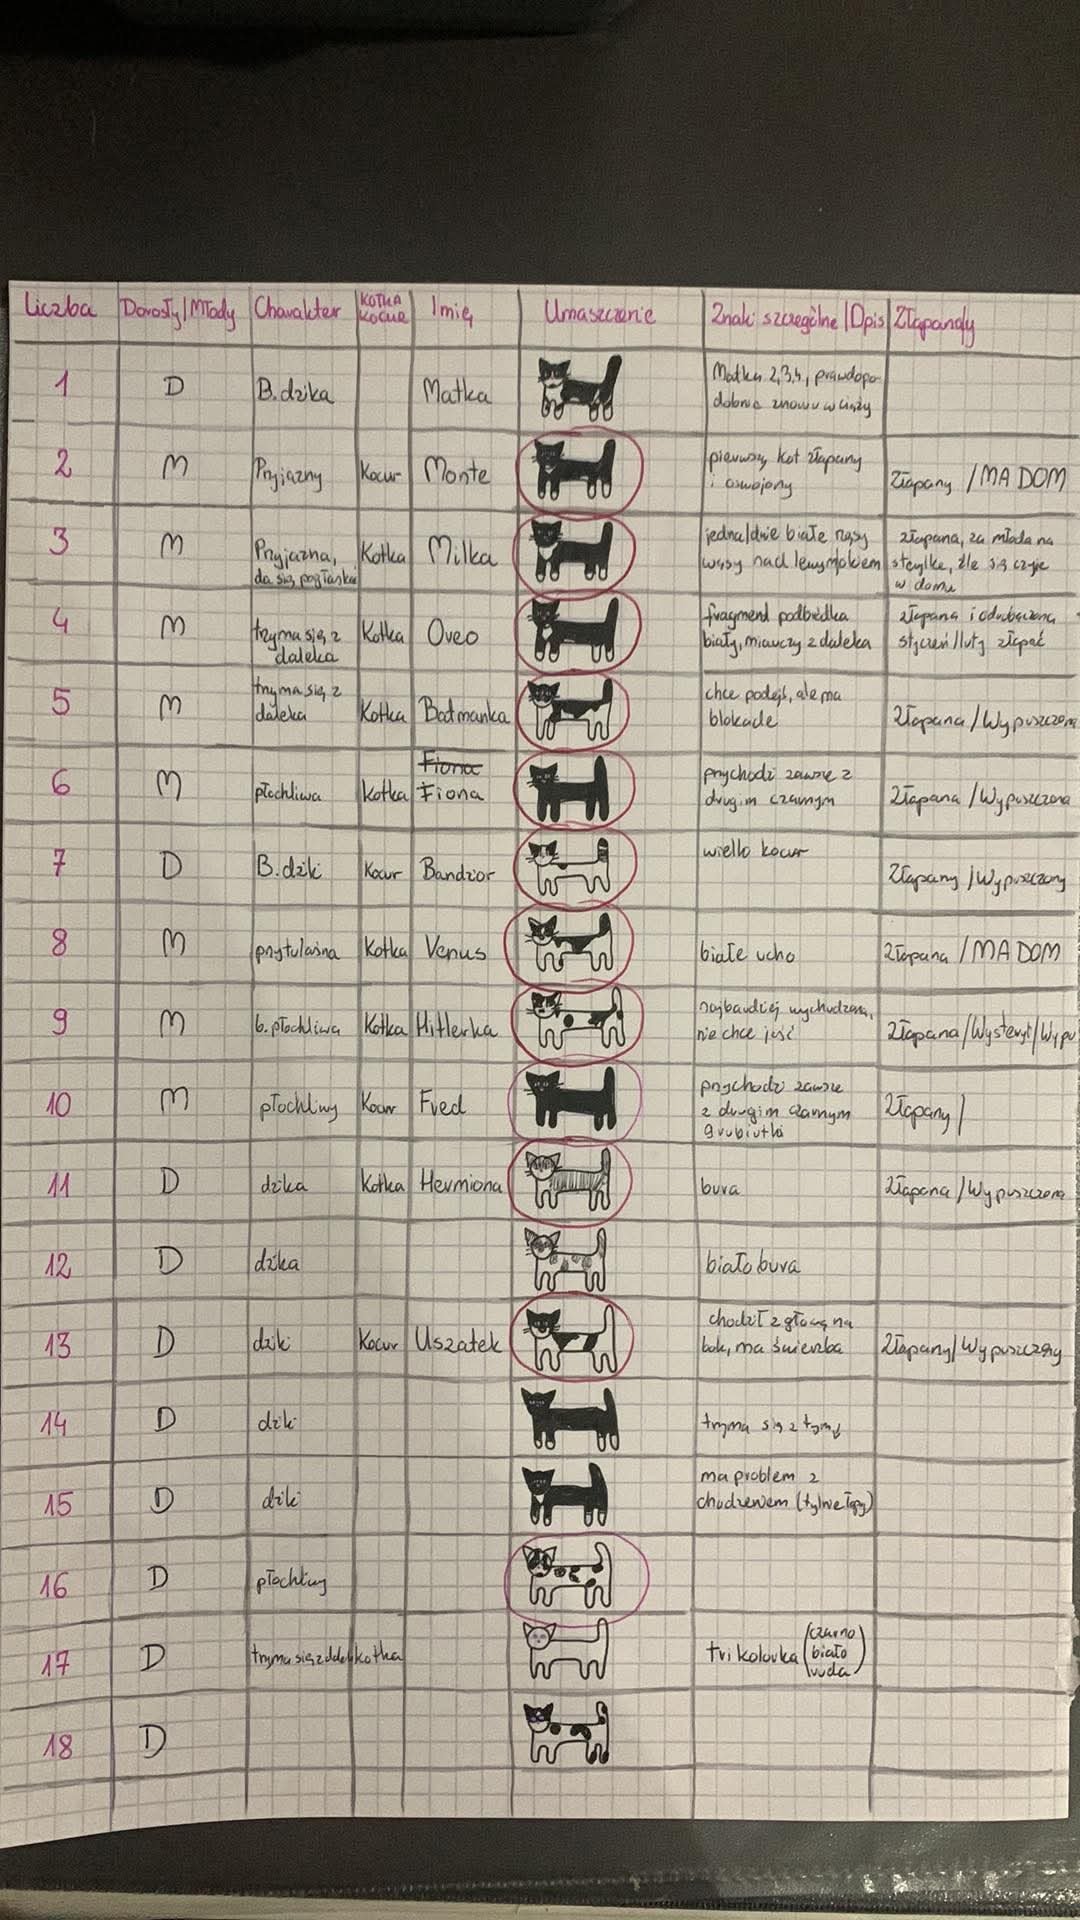 Liczba Dorosły/Młody Charakter KOTKA KOCUR Imię Umaszczenie Znaki szczególne/Opis Złapandy
1 D B. dzika Matka Matka 2,3,4, prawdopo
dobnie znowu w ciąży
2 M Przyjazny Kocur Monte pierwszy kot złapany
i oswojony Złapany / MA DOM
3 M Przyjazna, Kotka Milka jedna/dwie białe rzęsy złapana, za młoda na
da się pogłaskać wąsy nad lewym okiem sterylkę, źle się czuje
w domu
4 M trzyma się z Kotka Oreo fragment podbródka złapana i odrobaczona
daleka biały, miauczy z daleka styczeń/luty złapać
5 M trzyma się z
daleka Kotka Batmanka chce podejść, ale ma
blokade Złapana / Wypuszczona
6 M płochliwa Kotka Fiona
Fiona przychodzi zawsze z
drugim czarnym Złapana / Wypuszczona
7 D B. dziki Kocur Bandzior wielki kocur Złapany / Wypuszczony
8 M przytulaśna Kotka Venus białe ucho Złapana / MA DOM
9 M b. płochliwa Kotka Hitlerka najbardziej wychudzona,
nie chce jeść Złapana/Wysteryl/Wypu
10 M płochliwy Kocur Fred przychodzi zawsze
z drugim czarnym
grubiutki Złapany /
11 D dzika Kotka Hermiona bura Złapana / Wypuszczona
12 D dzika biało bura
13 D dziki Kocur Uszatek chodził z głową na
bok, ma świerzba Złapany/Wypuszczony
14 D dziki trzyma się z tymi
15 D dziki ma problem z
chodzeniem (tylnie łapy)
16 D płochliwy
17 D trzyma się z dalek kotka tri kolorka (czarno
biało
ruda)
18 D